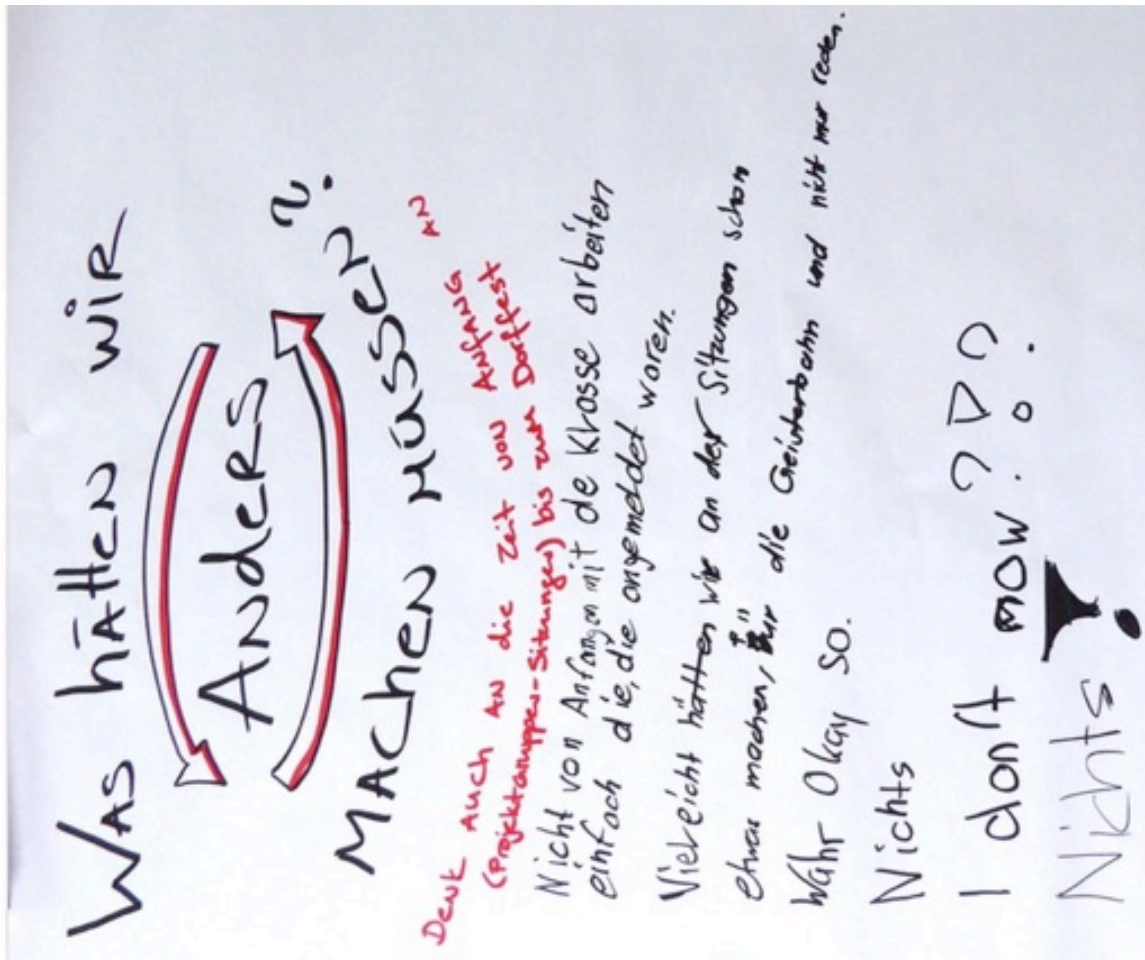 WAS hÄTTEN WIR
ANdERS
MACHEN MÜSSEN?
DENK AUCH AN die Zeit VON ANFANG AN
(Projektgruppen-Sitzungen) bis zum Dorffest
Nicht von Anfang an mit de Klasse arbeiten
einfach die, die angemeldet waren.
Vieleicht hätten wir an der Sitzungen schon
etwas machen, für die Geisterbahn und nicht nur reden.
Wahr Okay so.
Nichts
I don't now???
Nichts!